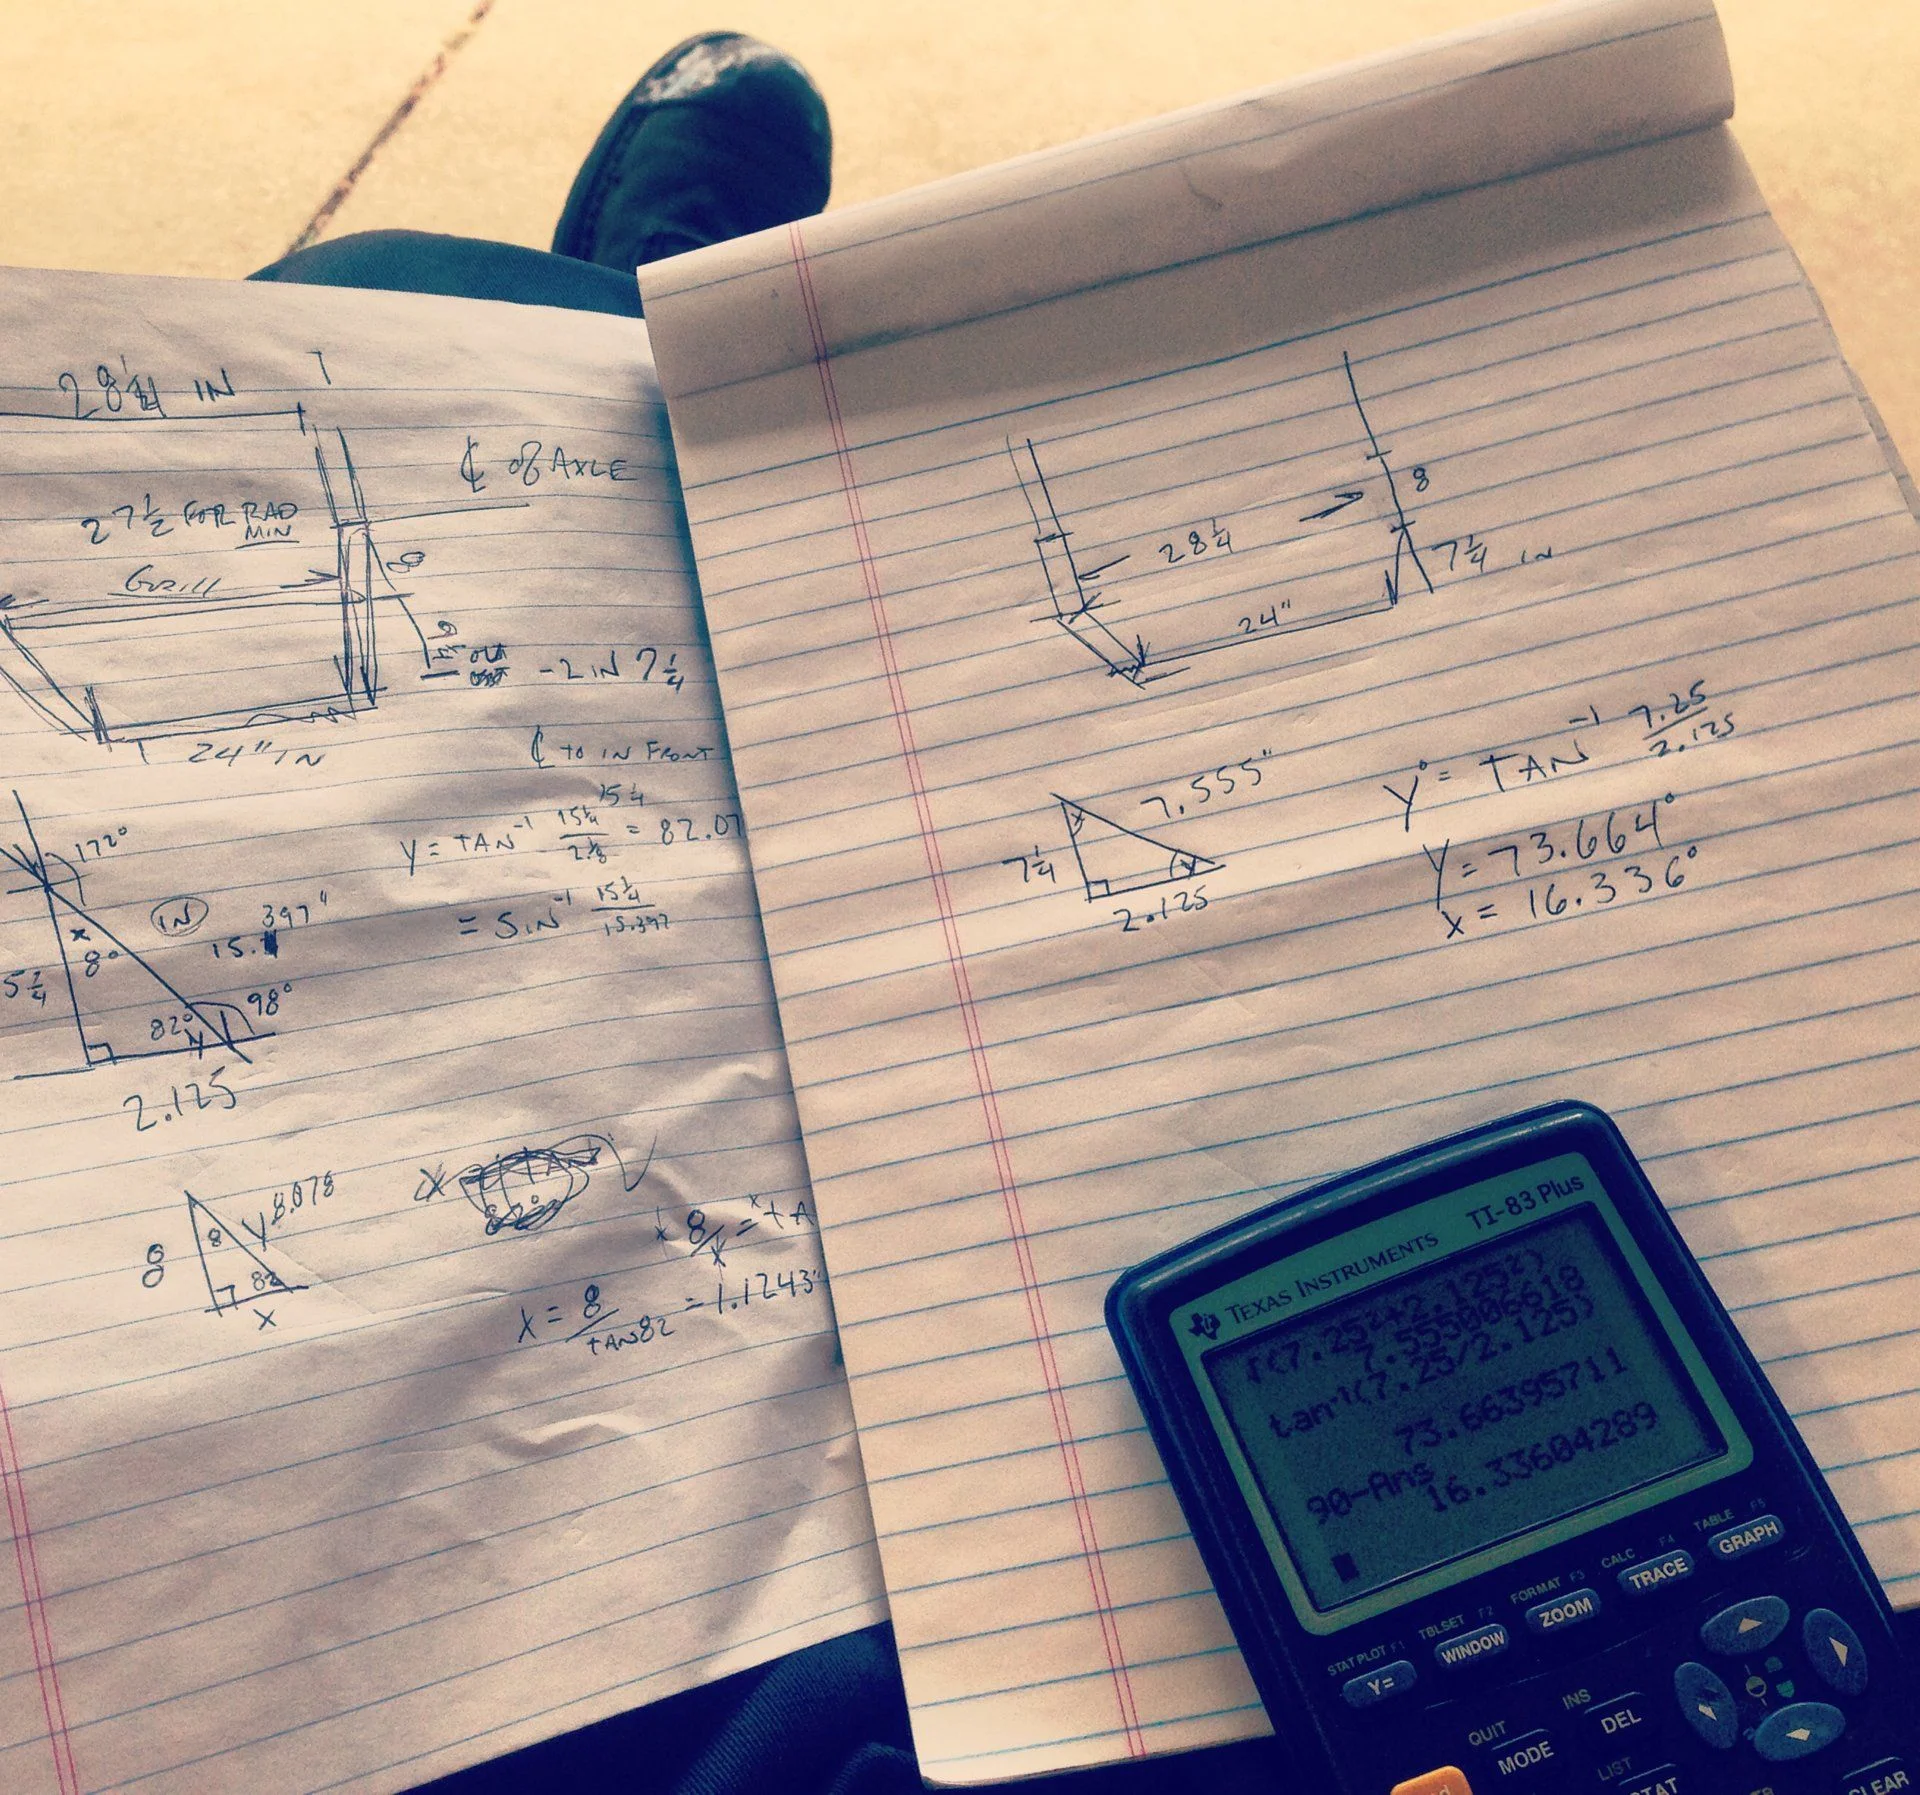 28 1/4 IN
℄ of AXLE
27 1/2 FOR RAD
MIN
Grill
8
- 2 IN 7 1/4
24" IN
℄ TO IN FRONT
15 1/4
Y = TAN⁻¹ 15 1/4 / 2 1/8 = 82.07
= SIN⁻¹ 15 1/4 / 15.397
172°
IN
15.397"
x
8°
5 1/4
82°
98°
Y
2.125
8
8
Y 8.078
82
x
8/x = TA
X = 8/TAN82 = 1.1243"
8
28 1/4
7 1/4 IN
24"
7.555"
x
7 1/4
Y
2.125
Y° = TAN⁻¹ 7.25/2.125
Y = 73.664°
X = 16.336°
TEXAS INSTRUMENTS TI-83 Plus
√(7.25²+2.125²)
7.555006618
tan⁻¹(7.25/2.125)
73.66395711
90-Ans
16.33604289
STAT PLOT F1 TBLSET F2 FORMAT F3 CALC F4 TABLE F5
Y= WINDOW ZOOM TRACE GRAPH
QUIT INS
MODE DEL
LIST
STAT CLEAR